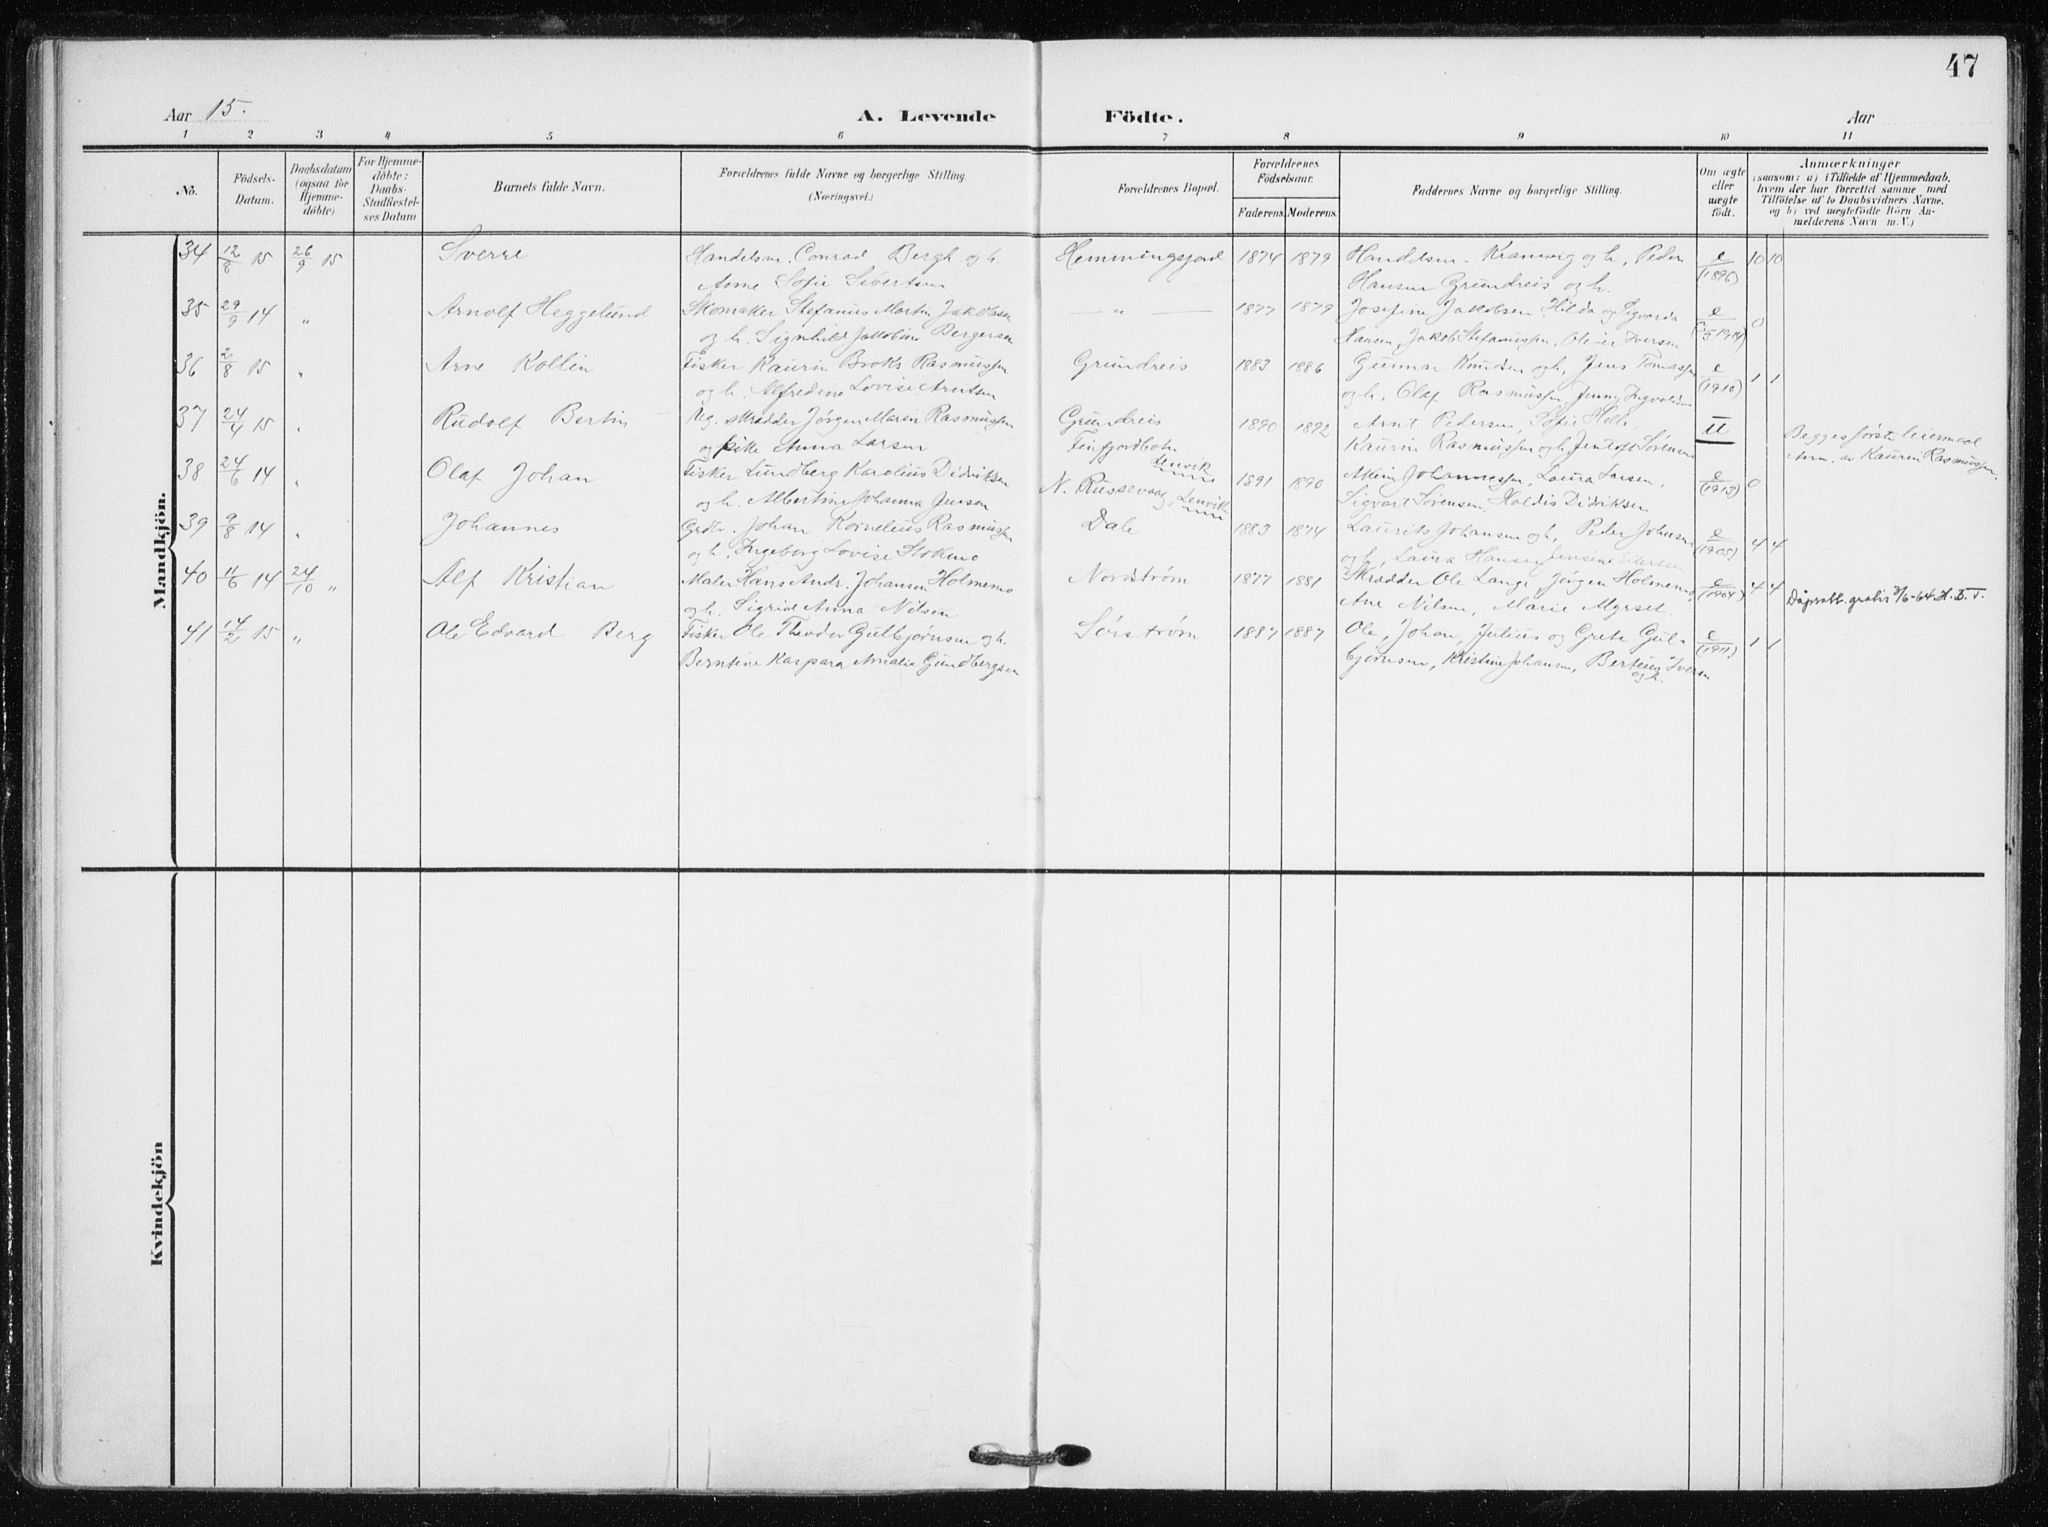 47
Aar 15. A. Levende Födte. Aar
1 2 3 4 5 6 7 8 9 10 11
No. Födsels-Datum. Daabsdatum (ogsaa for Hjemme-döbte) For Hjemme-döbte: Daabs-Stadfæstel-ses Datum Barnets fulde Navn. Forældrenes fulde Navne og borgerlige Stilling (Næringsvei.) Forældrenes Bopæl. Forældrenes Födselsaar. Faderens. Moderens. Faddernes Navne og borgerlige Stilling. Om ægte eller uægte födt. Anmærkninger
(saasom: a) i Tilfælde af Hjemmedaab,
hvem der har forrettet samme, med
Tilföielse af to Daabsvidners Navne,
og b) ved uægtefödte Börn An-
melderens Navn m. V.)
Mandkjön.
34 12/8 15 26/9 15 Sverre Handelsm. Conrad Bergh og h. Hemmingsfjord 1874 1879 Handelsm. Kranvig og h., Peder e/(1896) 10 10
Anne Sofie Sivertsen Hansen Grundreis og h.
35 29/9 14 " Arnolf Heggelund Skomaker Stefanus Martin Jakobsen — " — 1877 1879 Josefine Jakobsen Hilda og Sigvarda e 0
og h. Signhild Jakobine Bergersen Hansen, Jakob Stefanussen, Oliver Iversen
36 2/8 15 " Arne Kollin Fisker Kaurin Broks Rasmussen Grundreis 1883 1886 Gunnar Knudsen og h, Jens Tomassen e/(1910) 1 1
og h. Alfredine Lovise Arntsen og h, Olaf Rasmussen, Jenny Ingvaldsen
37 24/4 15 " Rudolf Bertin Ug. skrædder Jørgen Marin Rasmussen Grundreis 1890 1892 Arnt Pedersen, Sofie Hele U Begges første leiermaal
og pike Anna Larsen Finfjordbotn Lenvik Kaurin Rasmussen og h, Jentoft Sørensen Anm. av Kaurin Rasmussen.
38 24/6 14 " Olaf Johan Fisker Lundberg Karolius Didriksen N. Russevaag, Lenvik 1891 1890 Johannessen, Laura Larsen, e/(1913) 0
og h. Albertine Johanna Jensen Sigvart Sørensen, Haldis Didriksen
39 9/8 14 " Johannes Grdbr. Johan Kornelius Rasmussen Dale 1883 1874 Laurits Johansen og h, Peder Johansen e/(1905) 4 4
og h. Ingeborg Lovise Stokmo og h, Laura Hansen, Jensine Eilertsen
40 11/6 14 24/10 " Alf Kristian Maler Hans Andr. Johansen Holmemo Nordstrøm 1877 1881 Skrædder Ole Lange, Jørgen Holmemo, e/(1904) 4 4 Dåpsatt. gratis
og h. Sigrid Anna Nilsen Ane Nilsen, Marie Myrset
41 14/2 15 " Ole Edvard Berg Fisker Ole Theodor Gulbjørnsen og h. Sørstrøm 1887 1887 Ole, Johan, Julius og Grete Gul- e/(1911) 1 1
Berntine Kaspara Amalia Gundbergsen bjørnsen, Kristine Johansen, Berteus Iversen
og h.
Kvindekjön